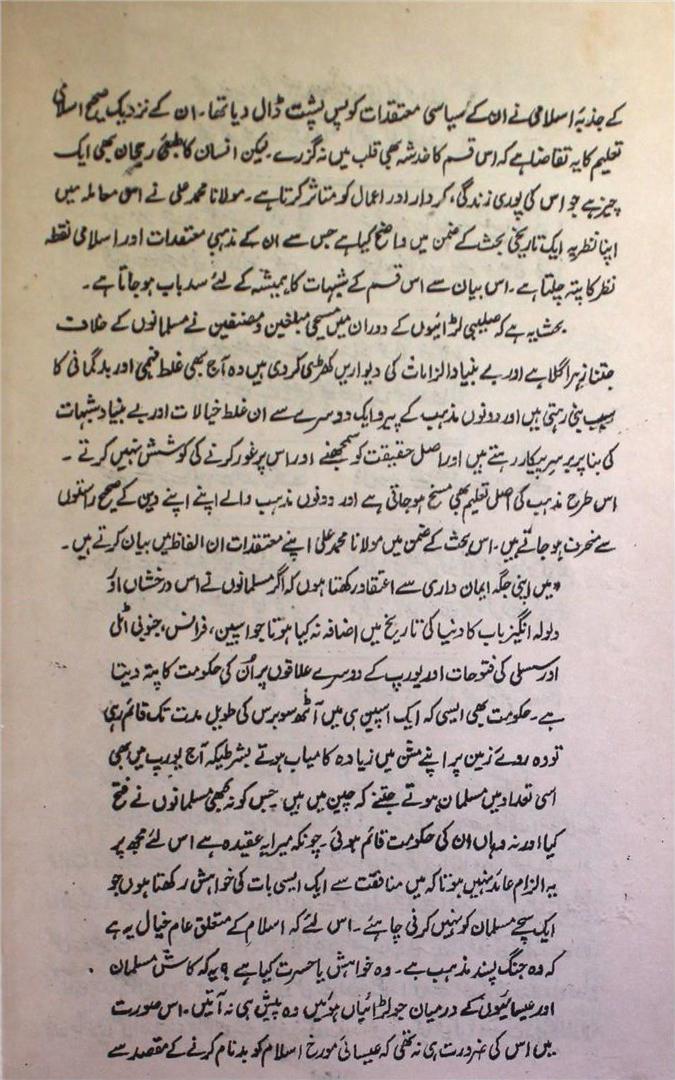 کے جذبۂ اسلامی نے ان کے سیاسی معتقدات کو پس پشت ڈال دیا تھا۔ ان کے نزدیک صحیح اسلامی
تعلیم کا یہ تقاضا ہے کہ اس قسم کا خدشہ بھی قلب میں نہ گزرے۔ لیکن انسان کا طبعی رجحان بھی ایک
چیز ہے جو اس کی پوری زندگی، کردار اور اعمال کو متاثر کرتا ہے۔ مولانا محمد علی نے اس معاملہ میں
اپنا نظریہ ایک تاریخی بحث کے ضمن میں واضح کیا ہے جس سے ان کے مذہبی معتقدات اور اسلامی نقطۂ
نظر کا پتہ چلتا ہے۔ اس بیان سے اس قسم کے شبہات کا ہمیشہ کے لئے سدباب ہو جاتا ہے۔
بحث یہ ہے کہ صلیبی لڑائیوں کے دوران میں مسیحی مبلغین و مصنفین نے مسلمانوں کے خلاف
جتنا زہر اگلا ہے اور بے بنیاد الزامات کی دیواریں کھڑی کر دی ہیں وہ آج بھی غلط فہمی اور بدگمانی کا
سبب بنی رہتی ہیں اور دونوں مذہب کے پیرو ایک دوسرے سے ان غلط خیالات اور بے بنیاد شبہات
کی بنا پر برسرپیکار رہتے ہیں اور اصل حقیقت کو سمجھنے اور اس پر غور کرنے کی کوشش نہیں کرتے۔
اس طرح مذہب کی اصل تعلیم بھی مسخ ہو جاتی ہے اور دونوں مذہب والے اپنے اپنے دین کے صحیح راستوں
سے منحرف ہو جاتے ہیں۔ اس بحث کے ضمن میں مولانا محمد علی اپنے معتقدات ان الفاظ میں بیان کرتے ہیں۔
"میں اپنی جگہ ایمان داری سے اعتقاد رکھتا ہوں کہ اگر مسلمانوں نے اس درخشاں اور
ولولہ انگیز باب کا دنیا کی تاریخ میں اضافہ نہ کیا ہوتا جو اسپین، فرانس، جنوبی اٹلی
اور سسلی کی فتوحات اور یورپ کے دوسرے علاقوں پر اُن کی حکومت کا پتہ دیتا
ہے۔ حکومت بھی ایسی کہ ایک اسپین ہی میں آٹھ سو برس کی طویل مدت تک قائم رہی
تو وہ روئے زمین پر اپنے مشن میں زیادہ کامیاب ہوتے بشرطیکہ آج یورپ میں بھی
اسی تعداد میں مسلمان ہوتے جتنے کہ چین میں ہیں جس کو نہ کبھی مسلمانوں نے فتح
کیا اور نہ وہاں ان کی حکومت قائم ہوئی۔ چونکہ میرا یہ عقیدہ ہے اس لئے مجھ پر
یہ الزام عائد نہیں ہوتا کہ میں منافقت سے ایک ایسی بات کی خواہش رکھتا ہوں جو
ایک سچے مسلمان کو نہیں کرنی چاہئے۔ اس لئے کہ اسلام کے متعلق عام خیال یہ ہے
کہ وہ جنگ پسند مذہب ہے۔ وہ خواہش یا حسرت کیا ہے؟ یہ کہ کاش مسلمان
اور عیسائیوں کے درمیان جو لڑائیاں ہوئیں وہ پیش ہی نہ آتیں۔ اس صورت
میں اس کی ضرورت ہی نہ تھی کہ عیسائی مورخ اسلام کو بدنام کرنے کے مقصد سے